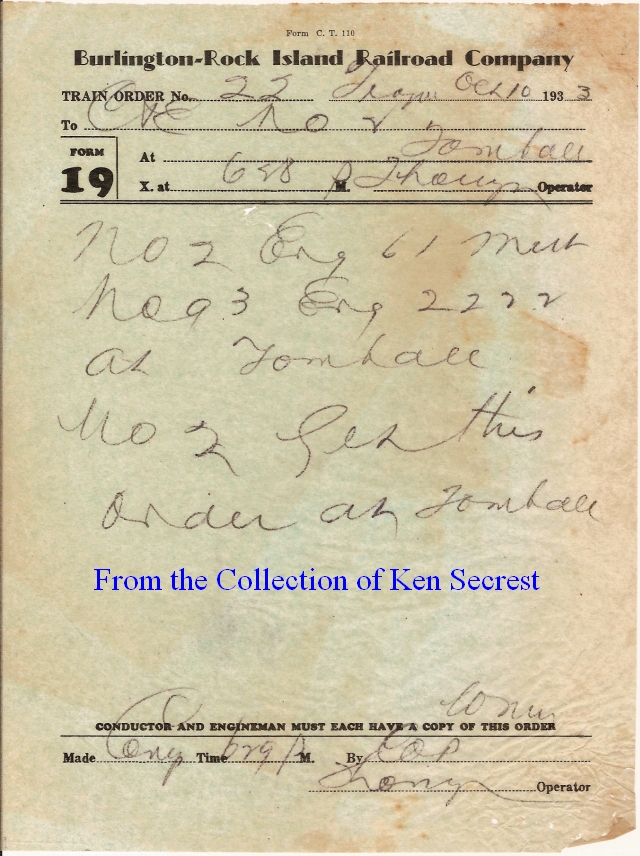 Form C. T. 110
Burlington-Rock Island Railroad Company
TRAIN ORDER No. 22 Oct 10 1933
To C&E No 2
FORM 19
At Tomball
X. at 628 P M. Operator
No 2 Eng 61 Meet
No 93 Eng 2222
at Tomball
No 2 Gets this
order at Tomball
From the Collection of Ken Secrest
CONDUCTOR AND ENGINEMAN MUST EACH HAVE A COPY OF THIS ORDER
Made Time 629 P M. By
Operator